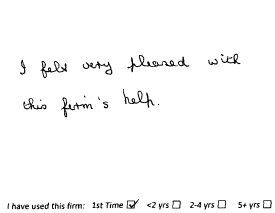 I felt very pleased with
this firm's help.
I have used this firm: 1st Time ☑ <2 yrs ☐ 2-4 yrs ☐ 5+ yrs ☐